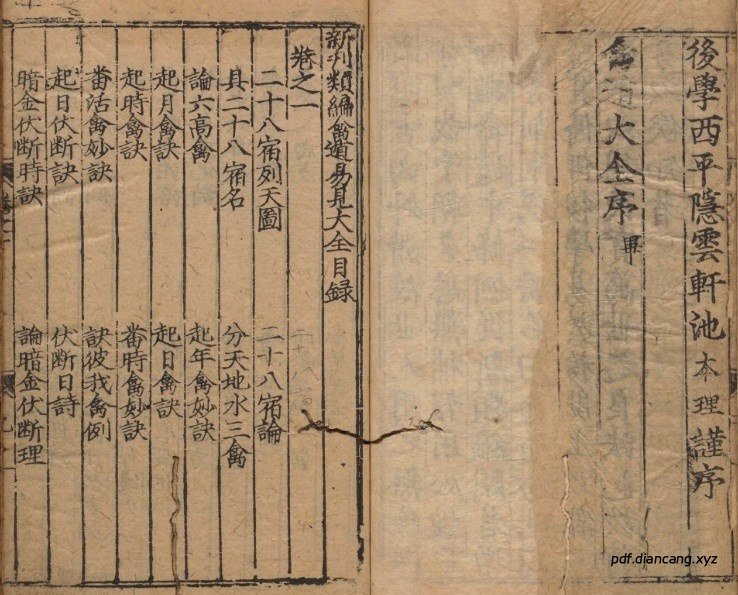 後學西平隱雲軒池本理謹序
禽遁大全序畢
新刊類編禽遁易見大全目録
卷之一
二十八宿列天圖 二十八宿論
具二十八宿名 分天地水三禽
論六高禽 起年禽妙訣
起月禽訣 起日禽訣
起時禽訣 番時禽妙訣
番活禽妙訣 訣彼我禽例
起日伏断訣 伏断日詩
暗金伏断時訣 論暗金伏断理
pdf.diancang.xyz